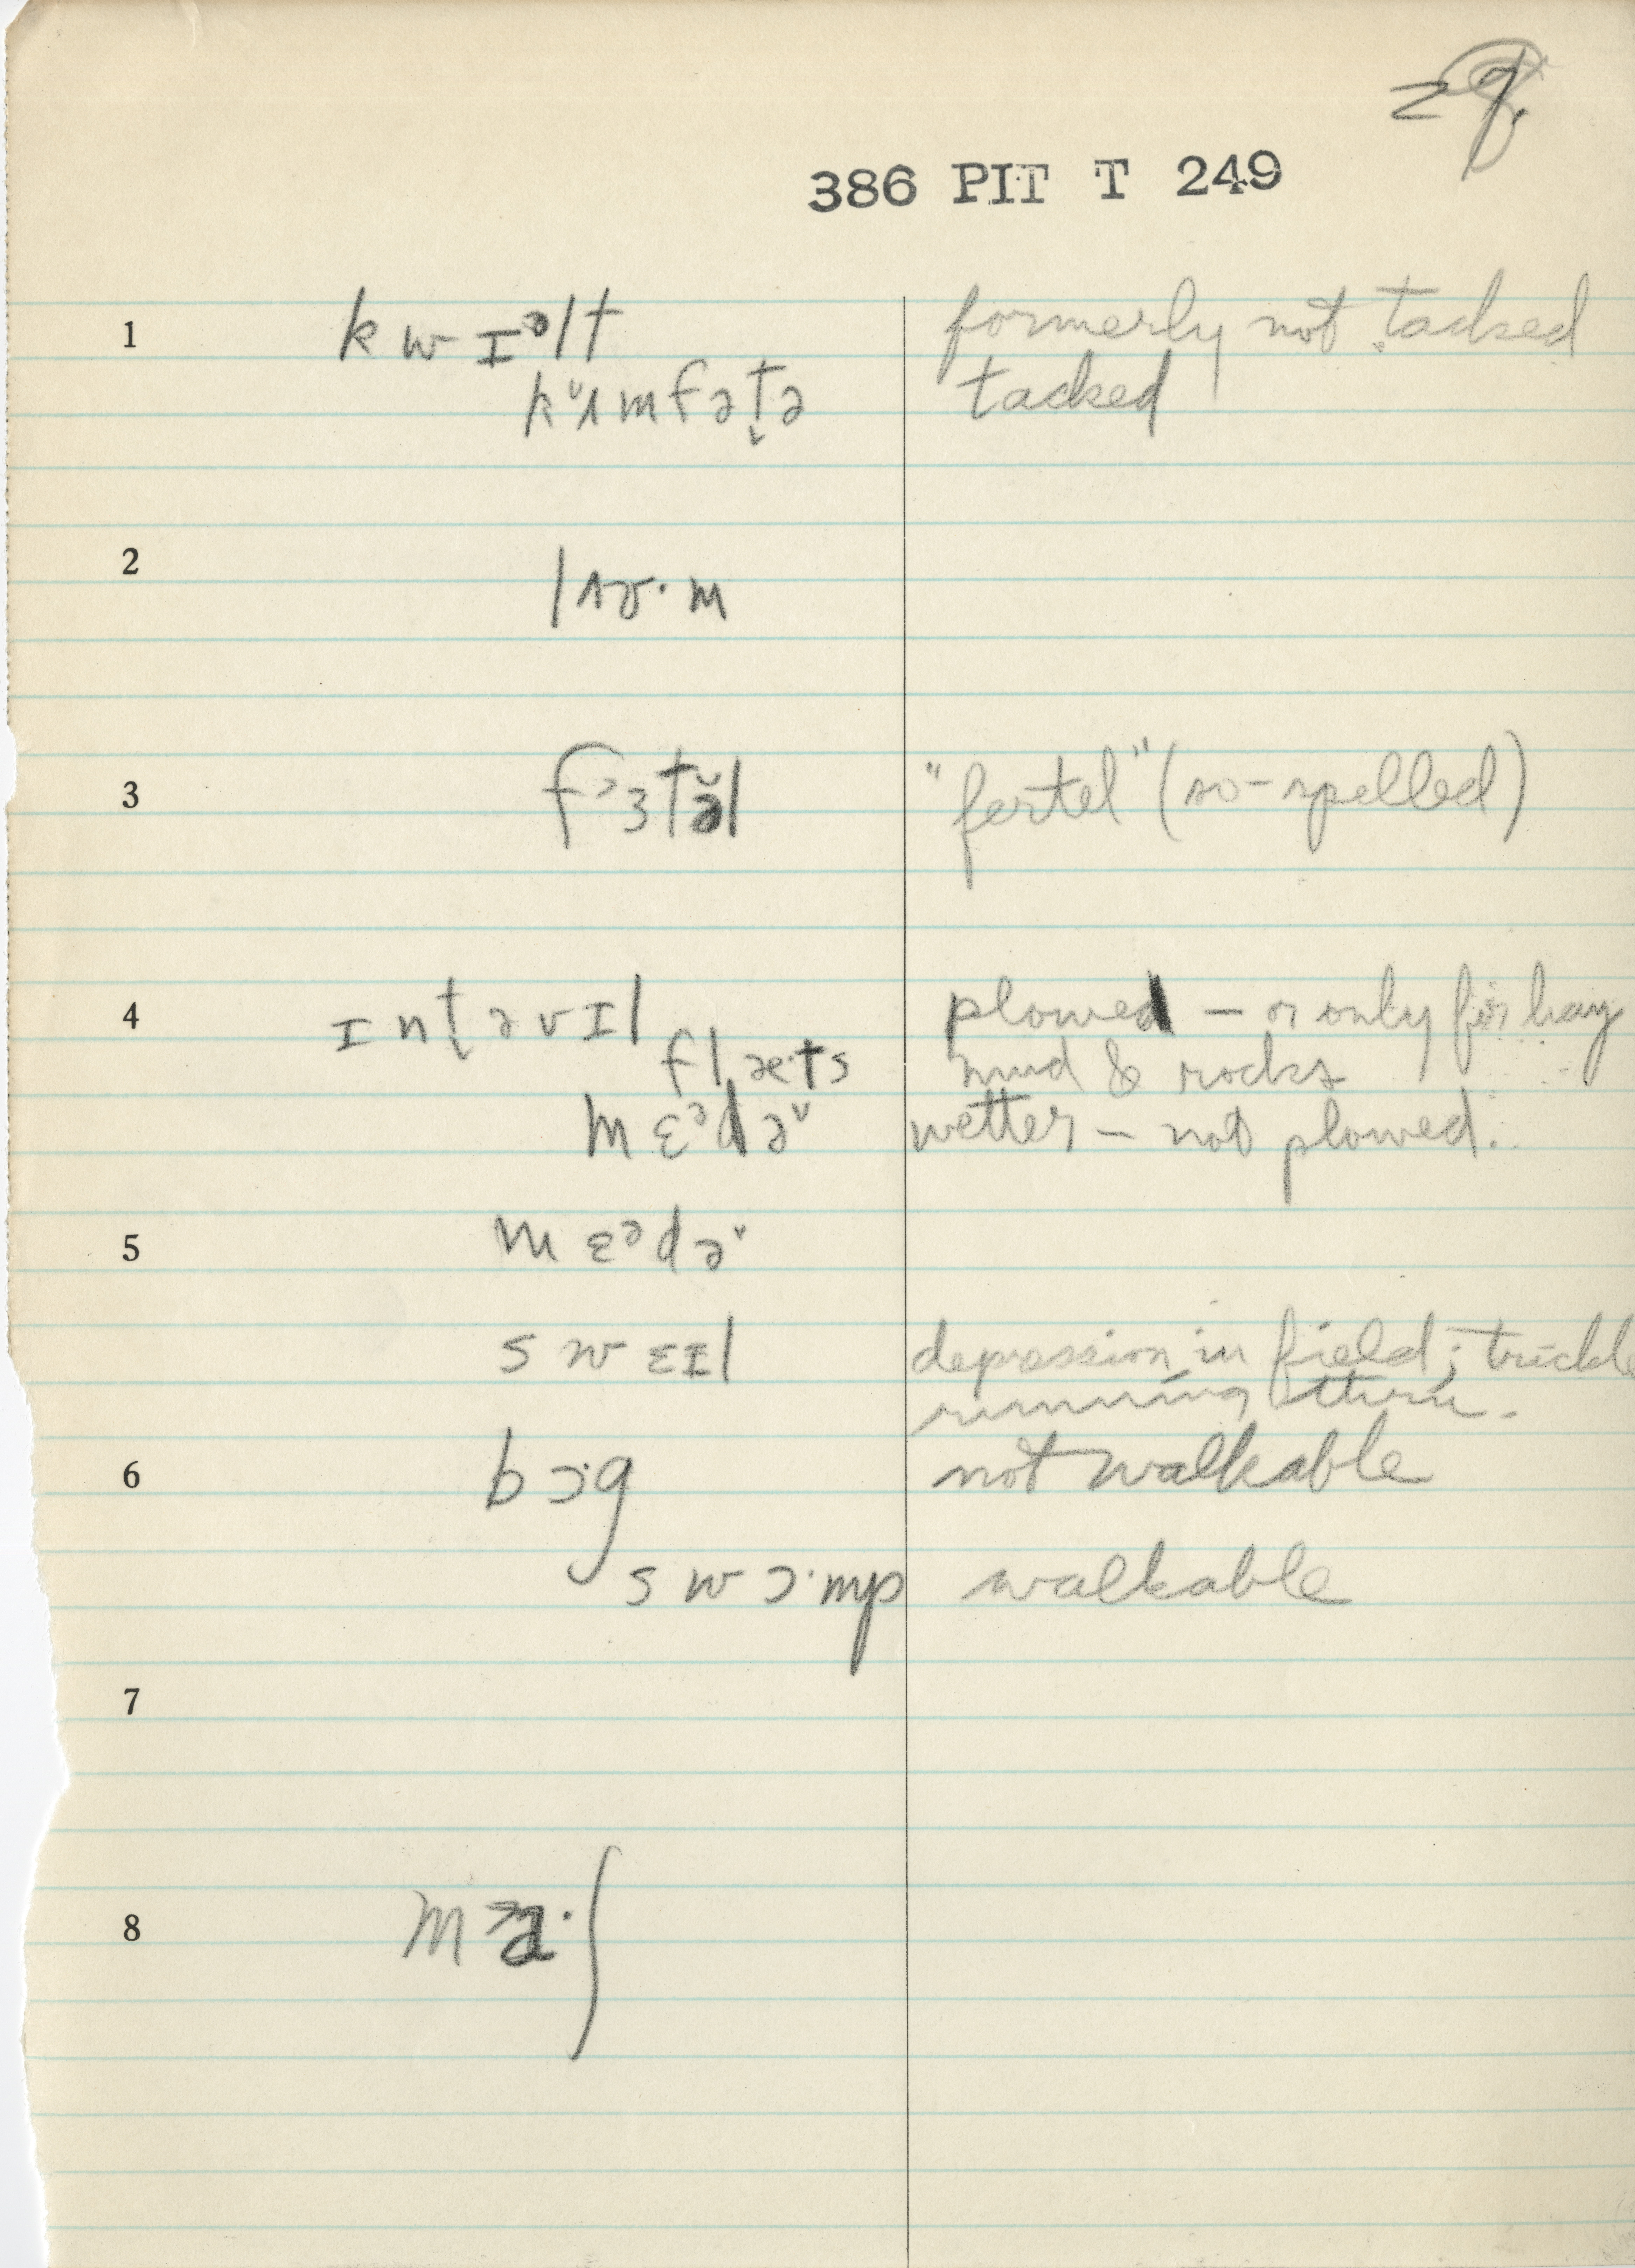 386 PIT T 249
1 kwɪᵊlt formerly not tacked
kʌmfət̬ə tacked
2 lɜ·m
3 fɜtə̆l "fertel" (so-spelled)
4 ɪnt̬əvɪl plowed – or only for hay
flæ·ts mud & rocks
mɛᵊdəᵛ wetter – not plowed.
5 mɛᵊdəᵛ
swɛɪl depression in field; trickle
running thru.
6 bɔ·g not walkable
swɔ·mp walkable
7
8 ma·ʃ